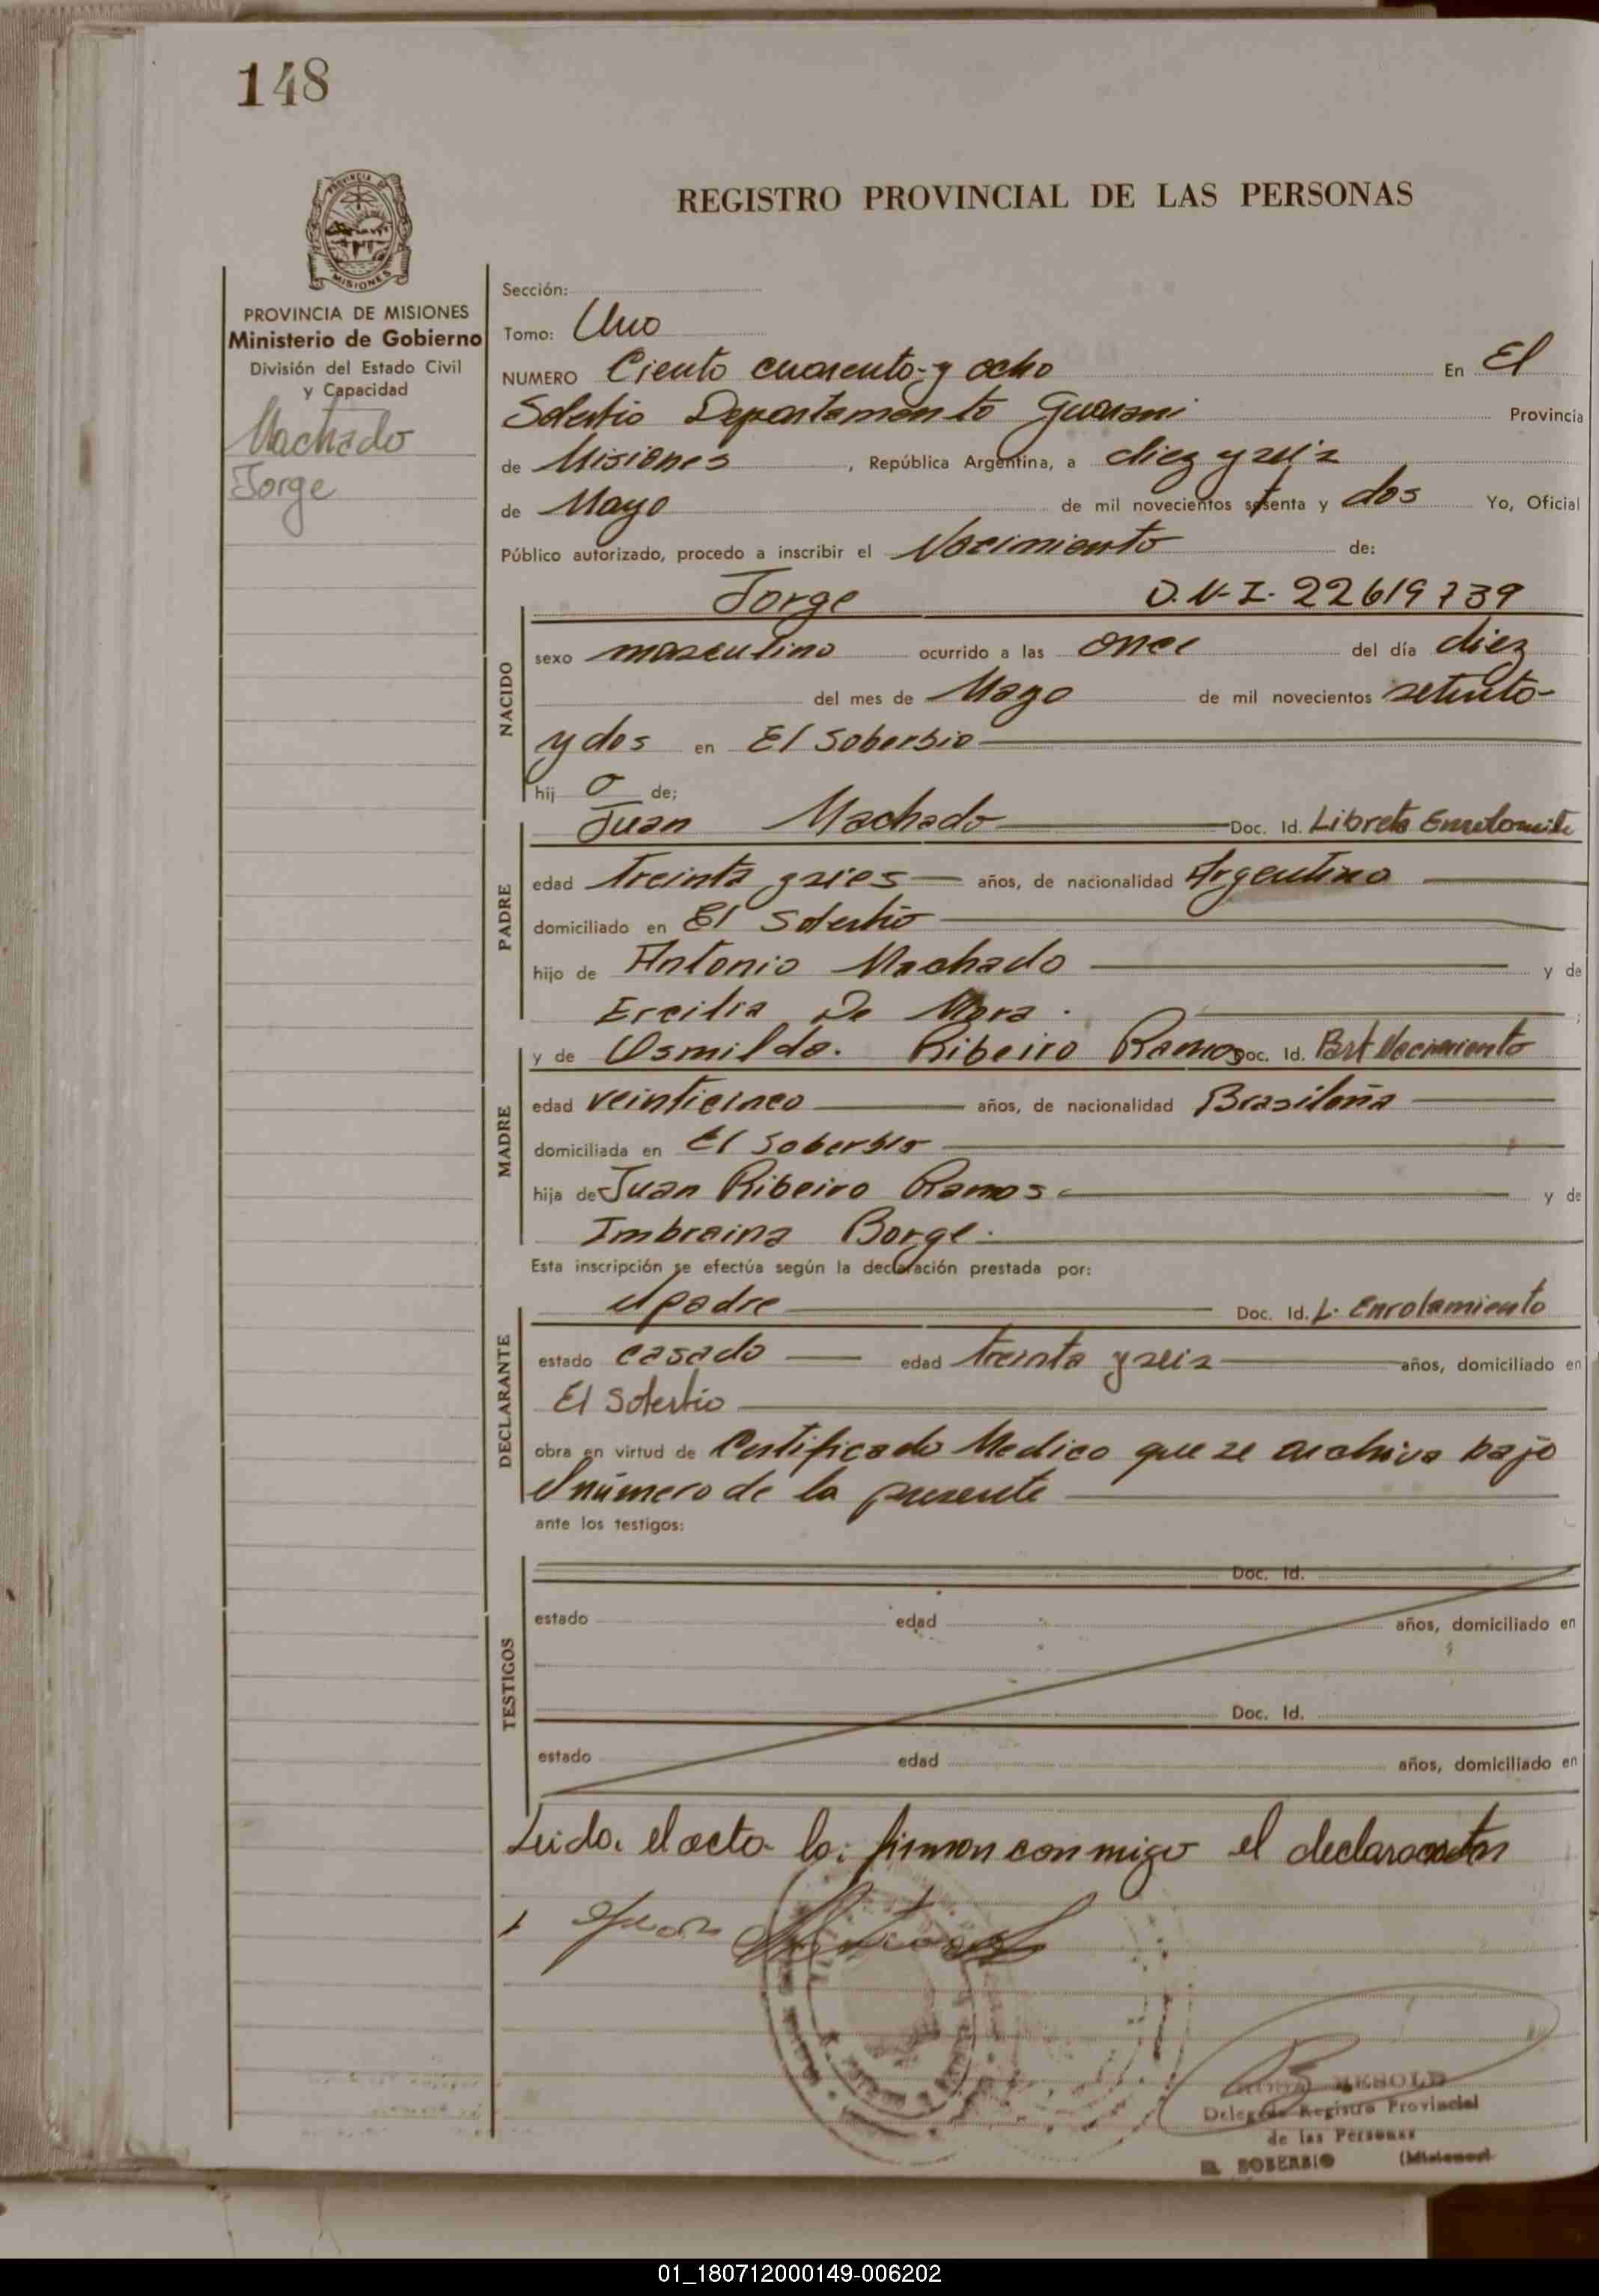 148
REGISTRO PROVINCIAL DE LAS PERSONAS
PROVINCIA DE
MISIONES
PROVINCIA DE MISIONES
Ministerio de Gobierno
División del Estado Civil
y Capacidad
Machado
Jorge
Sección:
Tomo: Uno
NUMERO Ciento cuarenta y ocho En El
Soberbio Departamento Guarani Provincia
de Misiones, República Argentina, a diez y seis
de Mayo de mil novecientos setenta y dos Yo, Oficial
Público autorizado, procedo a inscribir el Nacimiento de:
Jorge D.N.I. 22619739
NACIDO
sexo masculino ocurrido a las once del día diez
del mes de Mayo de mil novecientos setenta
y dos en El Soberbio
hij o de;
Juan Machado Doc. Id. Libreta
PADRE
edad treinta y sies años, de nacionalidad Argentino
domiciliado en El Soberbio
hijo de Antonio Machado y de
Ercilia De Mora.
y de Osmilda. Ribeiro Ramos Doc. Id. Part Nacimiento
MADRE
edad veinticinco años, de nacionalidad Brasileña
domiciliada en El Soberbio
hija de Juan Ribeiro Ramos y de
Imbraina Borge.
Esta inscripción se efectúa según la declaración prestada por:
el padre Doc. Id. L. Enrolamiento
DECLARANTE
estado casado edad treinta y seis años, domiciliado en
El Soberbio
obra en virtud de Certificado Medico que se archiva bajo
el número de la presente
ante los testigos:
TESTIGOS
Doc. Id.
estado edad años, domiciliado en
Doc. Id.
estado edad años, domiciliado en
Leida el acta la firman conmigo el
Juan
Delegado Registro Provincial
de las Personas
EL SOBERBIO (Misiones)
01_180712000149-006202